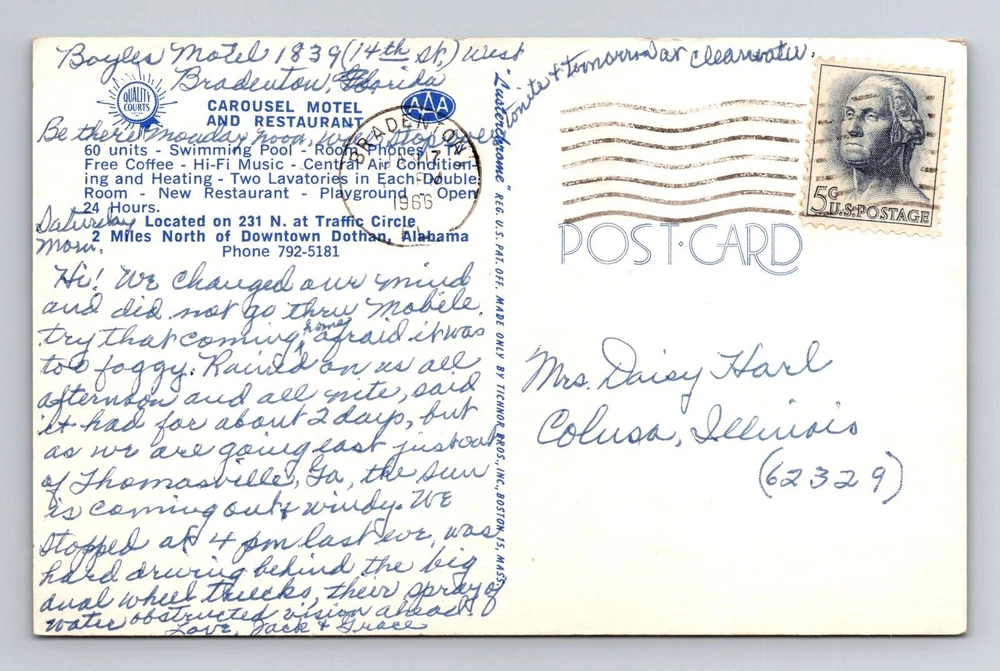 Boyles Motel 1839 (14th St,) West
Bradenton, Florida
QUALITY COURTS
CAROUSEL MOTEL
AND RESTAURANT
AAA
Be there Monday noon, will stop over
tonite & tomorrow at Clearwater.
60 units - Swimming Pool - Room Phones
Free Coffee - Hi-Fi Music - Central Air Condition-
ing and Heating - Two Lavatories in Each Double
Room - New Restaurant - Playground - Open
24 Hours.
Located on 231 N. at Traffic Circle
2 Miles North of Downtown Dothan, Alabama
Phone 792-5181
Saturday
Morn.
Hi! We changed our mind
and did not go thru Mobile,
try that coming home, afraid it was
too foggy. Rained on us all
afternoon and all nite, said
it had for about 2 days, but
as we are going east just out
of Thomasville, Ga, the sun
is coming out & windy. We
stopped at 4 pm last eve, was
hard driving behind the big
dual wheel trucks, their spray of
water obstructed vision ahead.
Love, Jack & Grace
"Lusterchrome" REG. U.S. PAT. OFF. MADE ONLY BY TICHNOR BROS., INC., BOSTON, 15, MASS.
BRADENTON
1966
5c U.S. POSTAGE
POST CARD
Mrs. Daisy Harl
Colusa, Illinois
(62329)